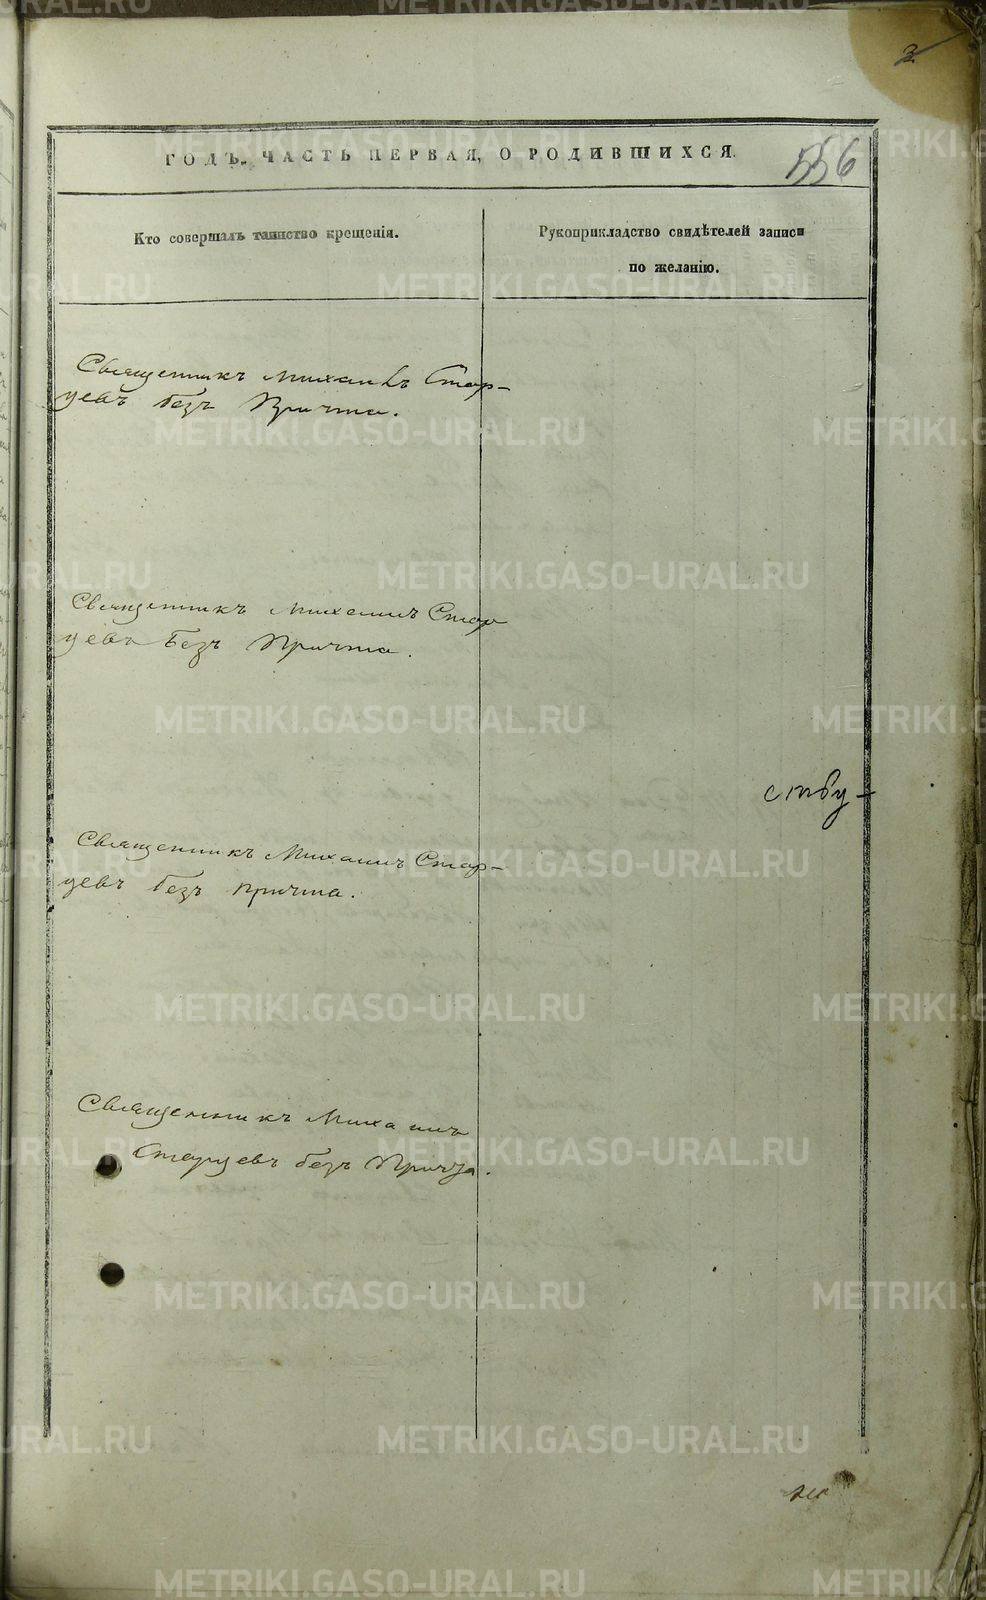 3
ГОДЪ. ЧАСТЬ ПЕРВАЯ, О РОДИВШИХСЯ.
556
Кто совершалъ таинство крещенія.
Рукоприкладство свидѣтелей записи
по желанію.
Священникъ Михаилъ Стар-
цевъ безъ Причта.
Священникъ Михаилъ Стар
цевъ безъ Причта.
Священникъ Михаилъ Стар-
цевъ безъ причта.
Священникъ Михаилъ
Старцевъ безъ Причта.
METRIKI.GASO-URAL.RU